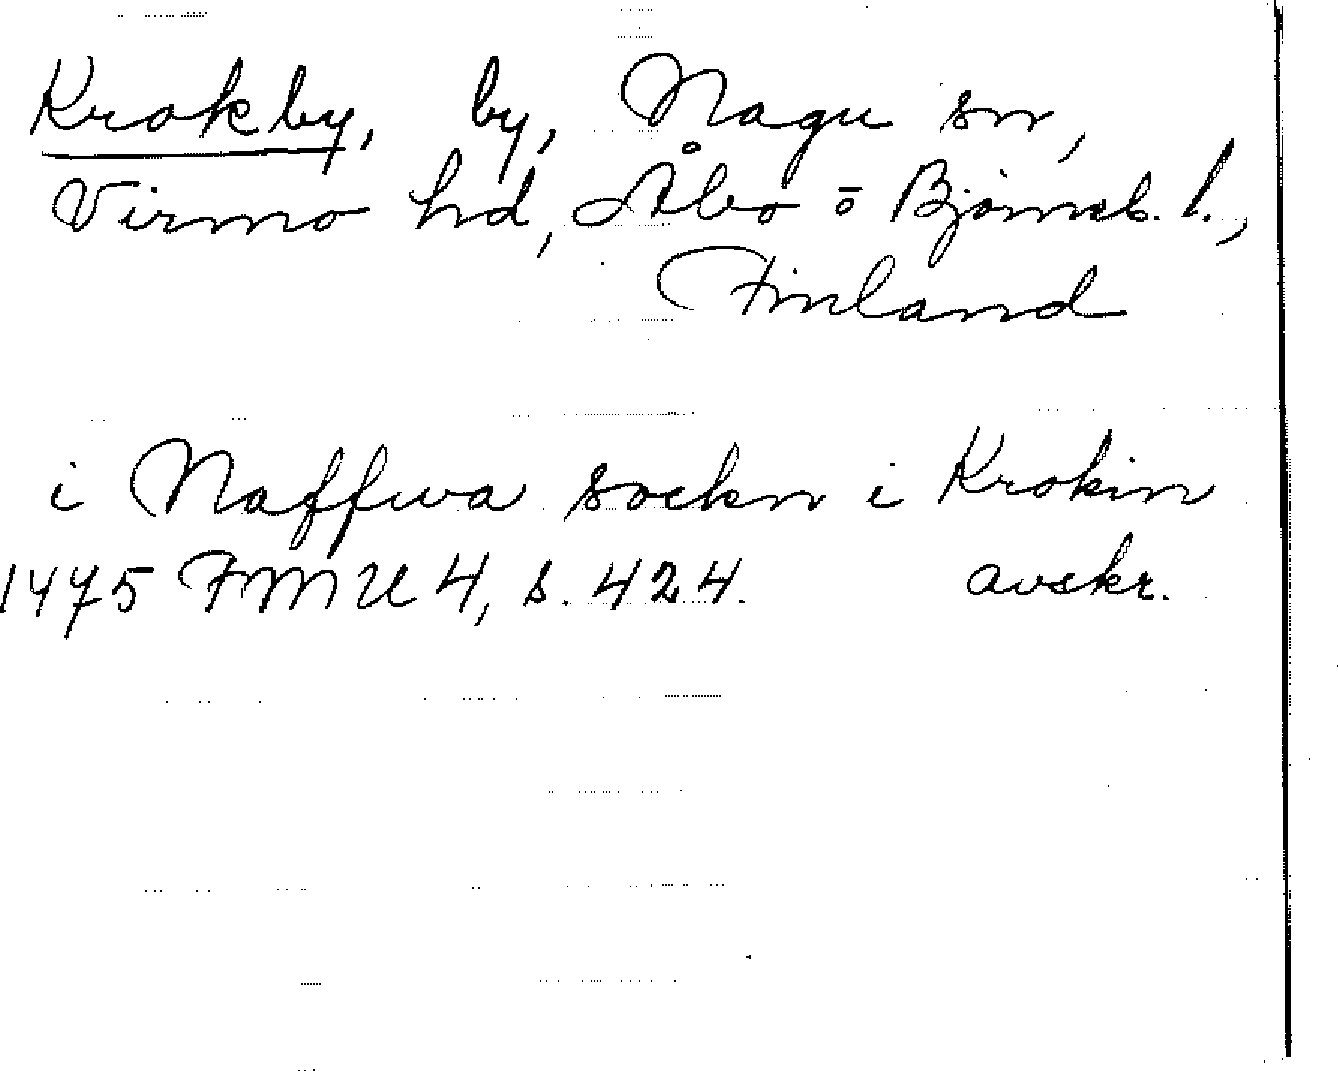 Krokby, by, Nagu sn,
Virmo hd, Åbo o Björneb. l.,
Finland
i Naffwa sockn i Krokin
1475 FMU 4, s. 424. avskr.